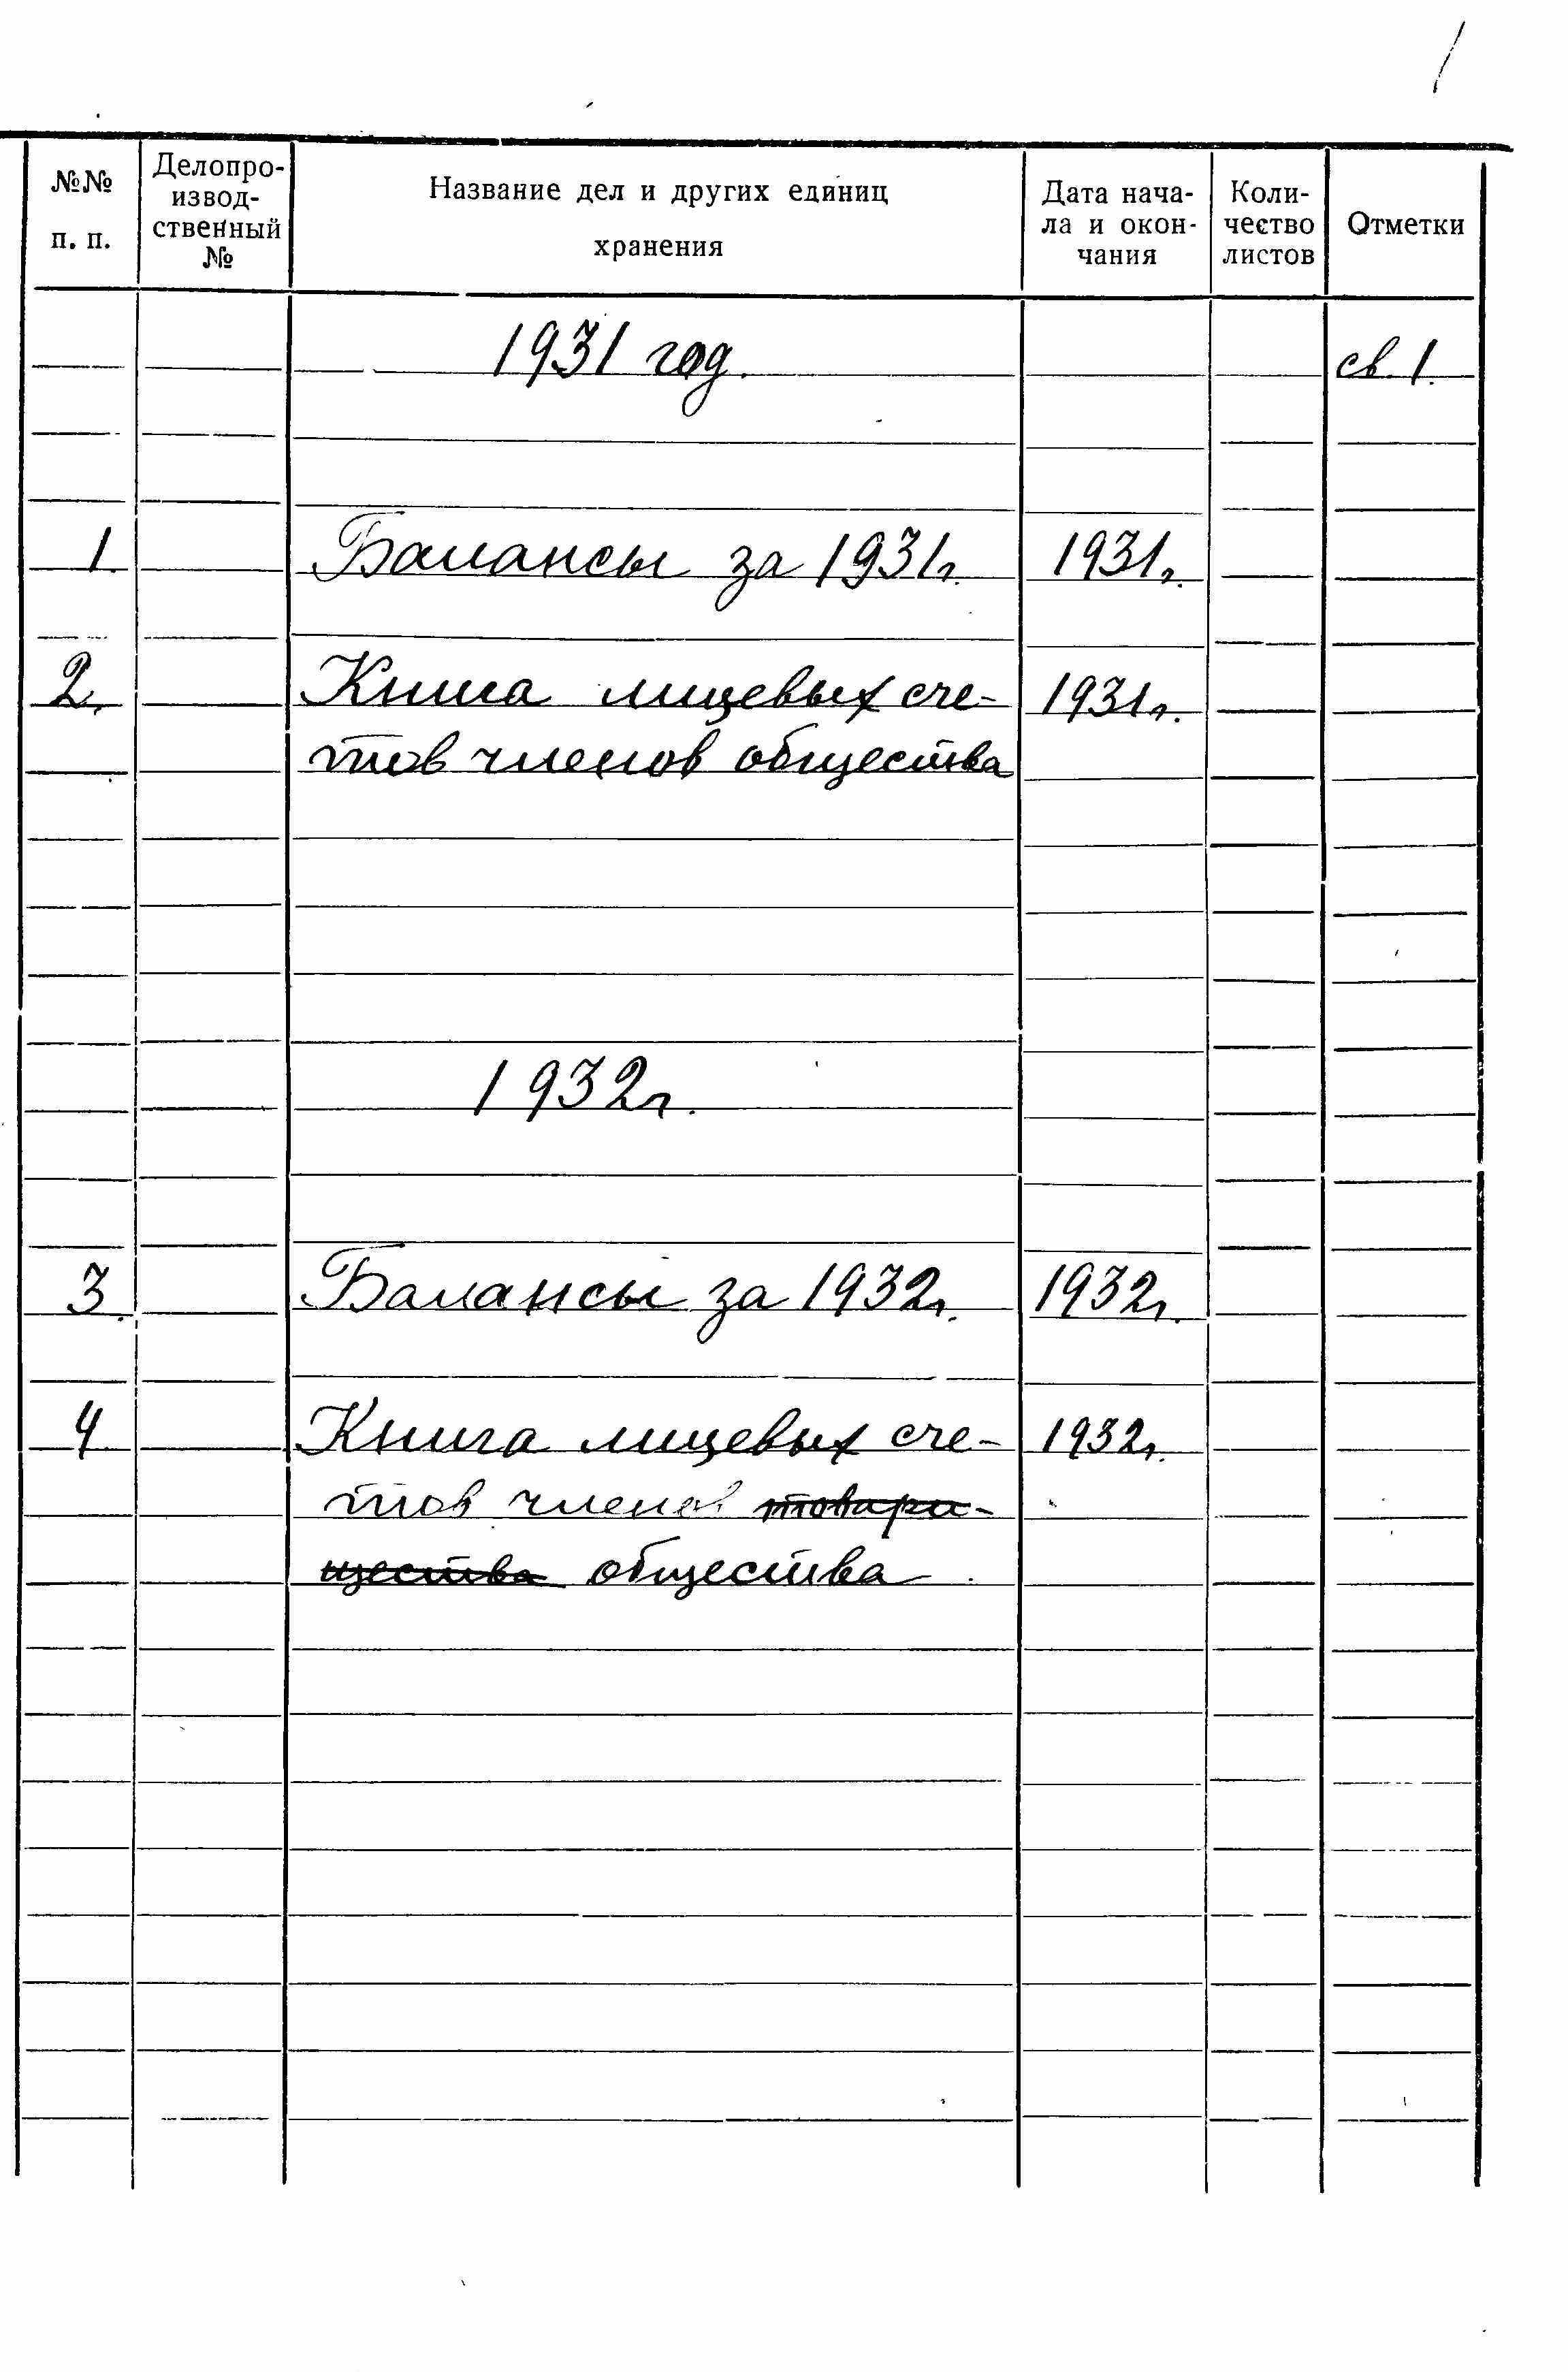 /
№№ п. п.
Делопро-
извод-
ственный
№
Название дел и других единиц
хранения
Дата нача-
ла и окон-
чания
Коли-
чество
листов
Отметки
1931 год. св. 1.
1. Балансы за 1931г. 1931г.
2. Книга лицевых сче- 1931г.
тов членов общества
1932г.
3. Балансы за 1932г. 1932г.
4 Книга лицевых сче- 1932г.
тов членов товари-
щества общества.